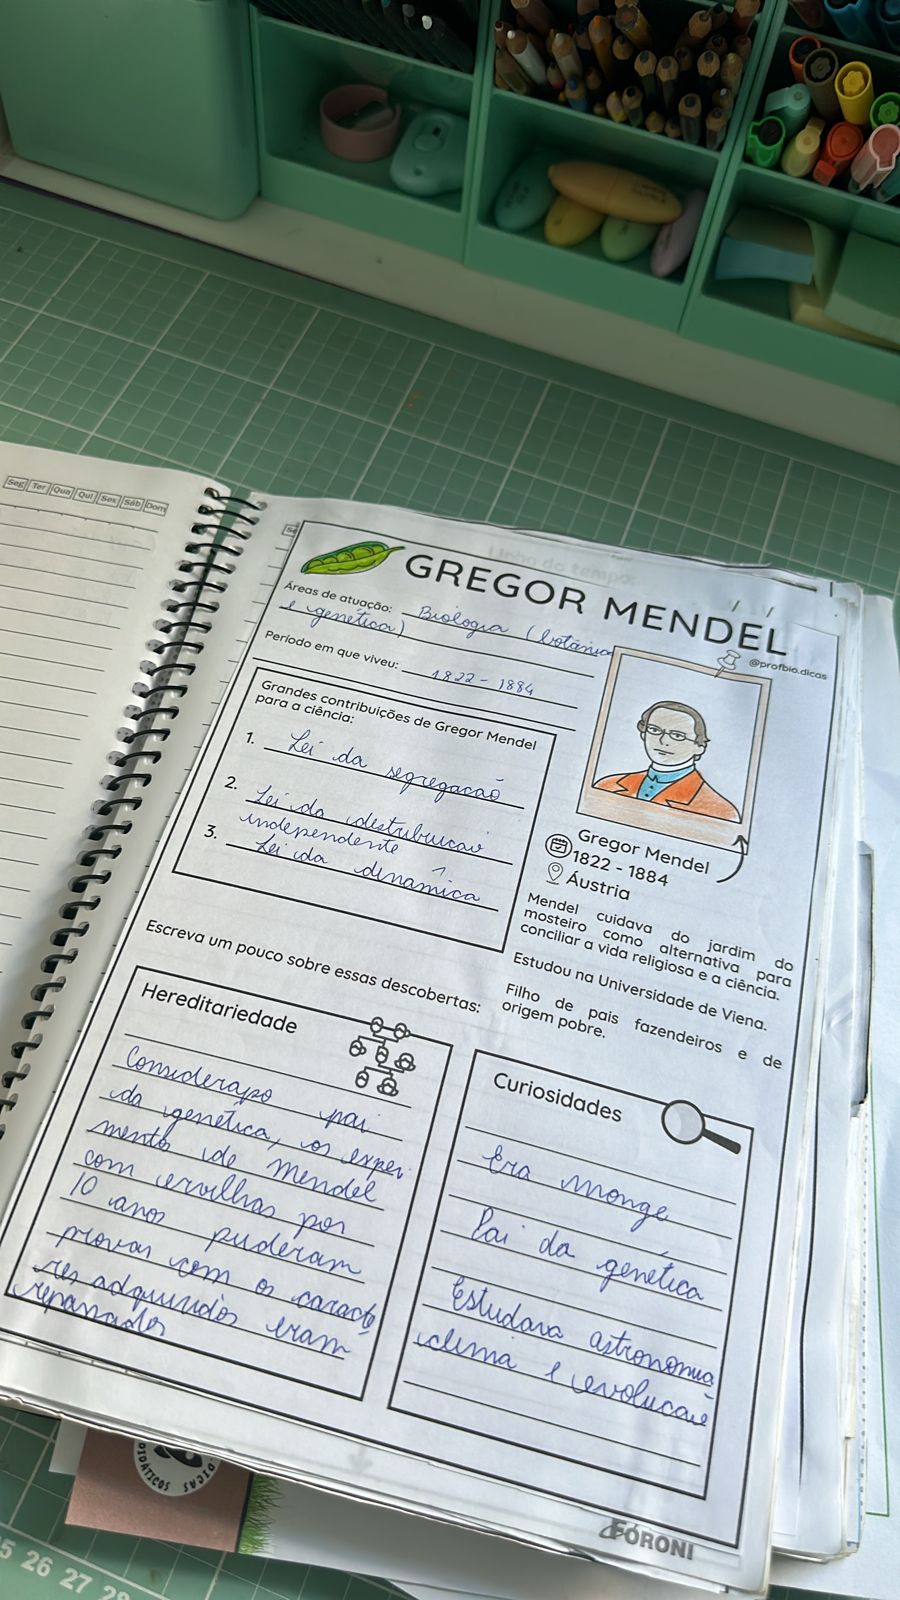 Seg Ter Qua Qui Sex Sáb Dom
GREGOR MENDEL
@profbio.dicas
Áreas de atuação: Biologia (botânica
e genética)
Período em que viveu: 1822 - 1884
Grandes contribuições de Gregor Mendel
para a ciência:
1. Lei da segregação
2. Lei da
independente
3. Lei da dinâmica
Gregor Mendel
1822 - 1884
Áustria
Mendel cuidava do jardim do
mosteiro como alternativa para
conciliar a vida religiosa e a ciência.
Estudou na Universidade de Viena.
Filho de pais fazendeiros e de
origem pobre.
Escreva um pouco sobre essas descobertas:
Hereditariedade
pai
da genética, os experi
mentos de Mendel
com ervilhas por
10 anos puderam
provar com os caracte
res adquiridos eram
Curiosidades
Era monge
Pai da genética
Estudava astronomia
clima e evolução
FORONI
DICAS
DIDÁTICOS
25 26 27 28